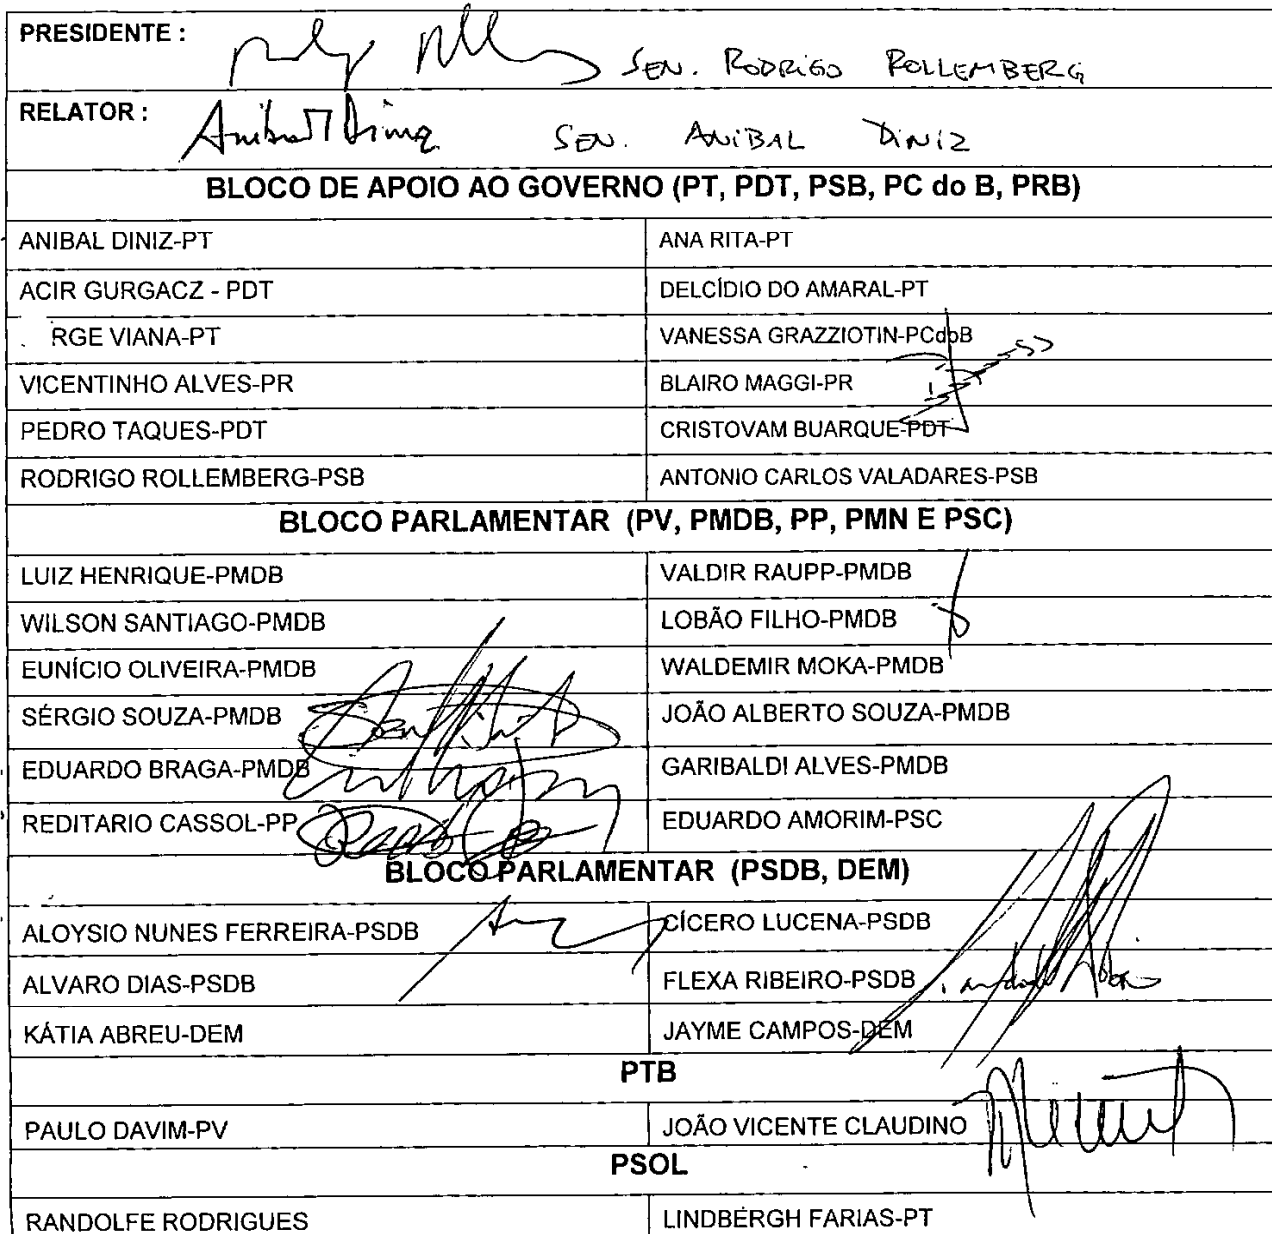 PRESIDENTE : SEN. RODRIGO ROLLEMBERG
RELATOR : Anibal Diniz SEN. ANIBAL DINIZ
BLOCO DE APOIO AO GOVERNO (PT, PDT, PSB, PC do B, PRB)
ANIBAL DINIZ-PT ANA RITA-PT
ACIR GURGACZ - PDT DELCÍDIO DO AMARAL-PT
RGE VIANA-PT VANESSA GRAZZIOTIN-PCdoB
VICENTINHO ALVES-PR BLAIRO MAGGI-PR
PEDRO TAQUES-PDT CRISTOVAM BUARQUE-PDT
RODRIGO ROLLEMBERG-PSB ANTONIO CARLOS VALADARES-PSB
BLOCO PARLAMENTAR (PV, PMDB, PP, PMN E PSC)
LUIZ HENRIQUE-PMDB VALDIR RAUPP-PMDB
WILSON SANTIAGO-PMDB LOBÃO FILHO-PMDB
EUNÍCIO OLIVEIRA-PMDB WALDEMIR MOKA-PMDB
SÉRGIO SOUZA-PMDB JOÃO ALBERTO SOUZA-PMDB
EDUARDO BRAGA-PMDB GARIBALDI ALVES-PMDB
REDITARIO CASSOL-PP EDUARDO AMORIM-PSC
BLOCO PARLAMENTAR (PSDB, DEM)
ALOYSIO NUNES FERREIRA-PSDB CÍCERO LUCENA-PSDB
ALVARO DIAS-PSDB FLEXA RIBEIRO-PSDB
KÁTIA ABREU-DEM JAYME CAMPOS-DEM
PTB
PAULO DAVIM-PV JOÃO VICENTE CLAUDINO
PSOL
RANDOLFE RODRIGUES LINDBERGH FARIAS-PT